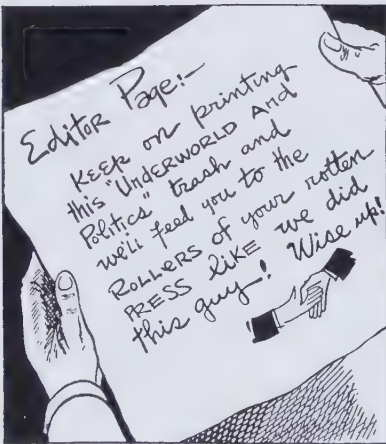 Editor Page:-
Keep on printing
this "Underworld And
Politics" trash and
we'll feed you to the
Rollers of your rotten
Press like we did
this guy! Wise up!